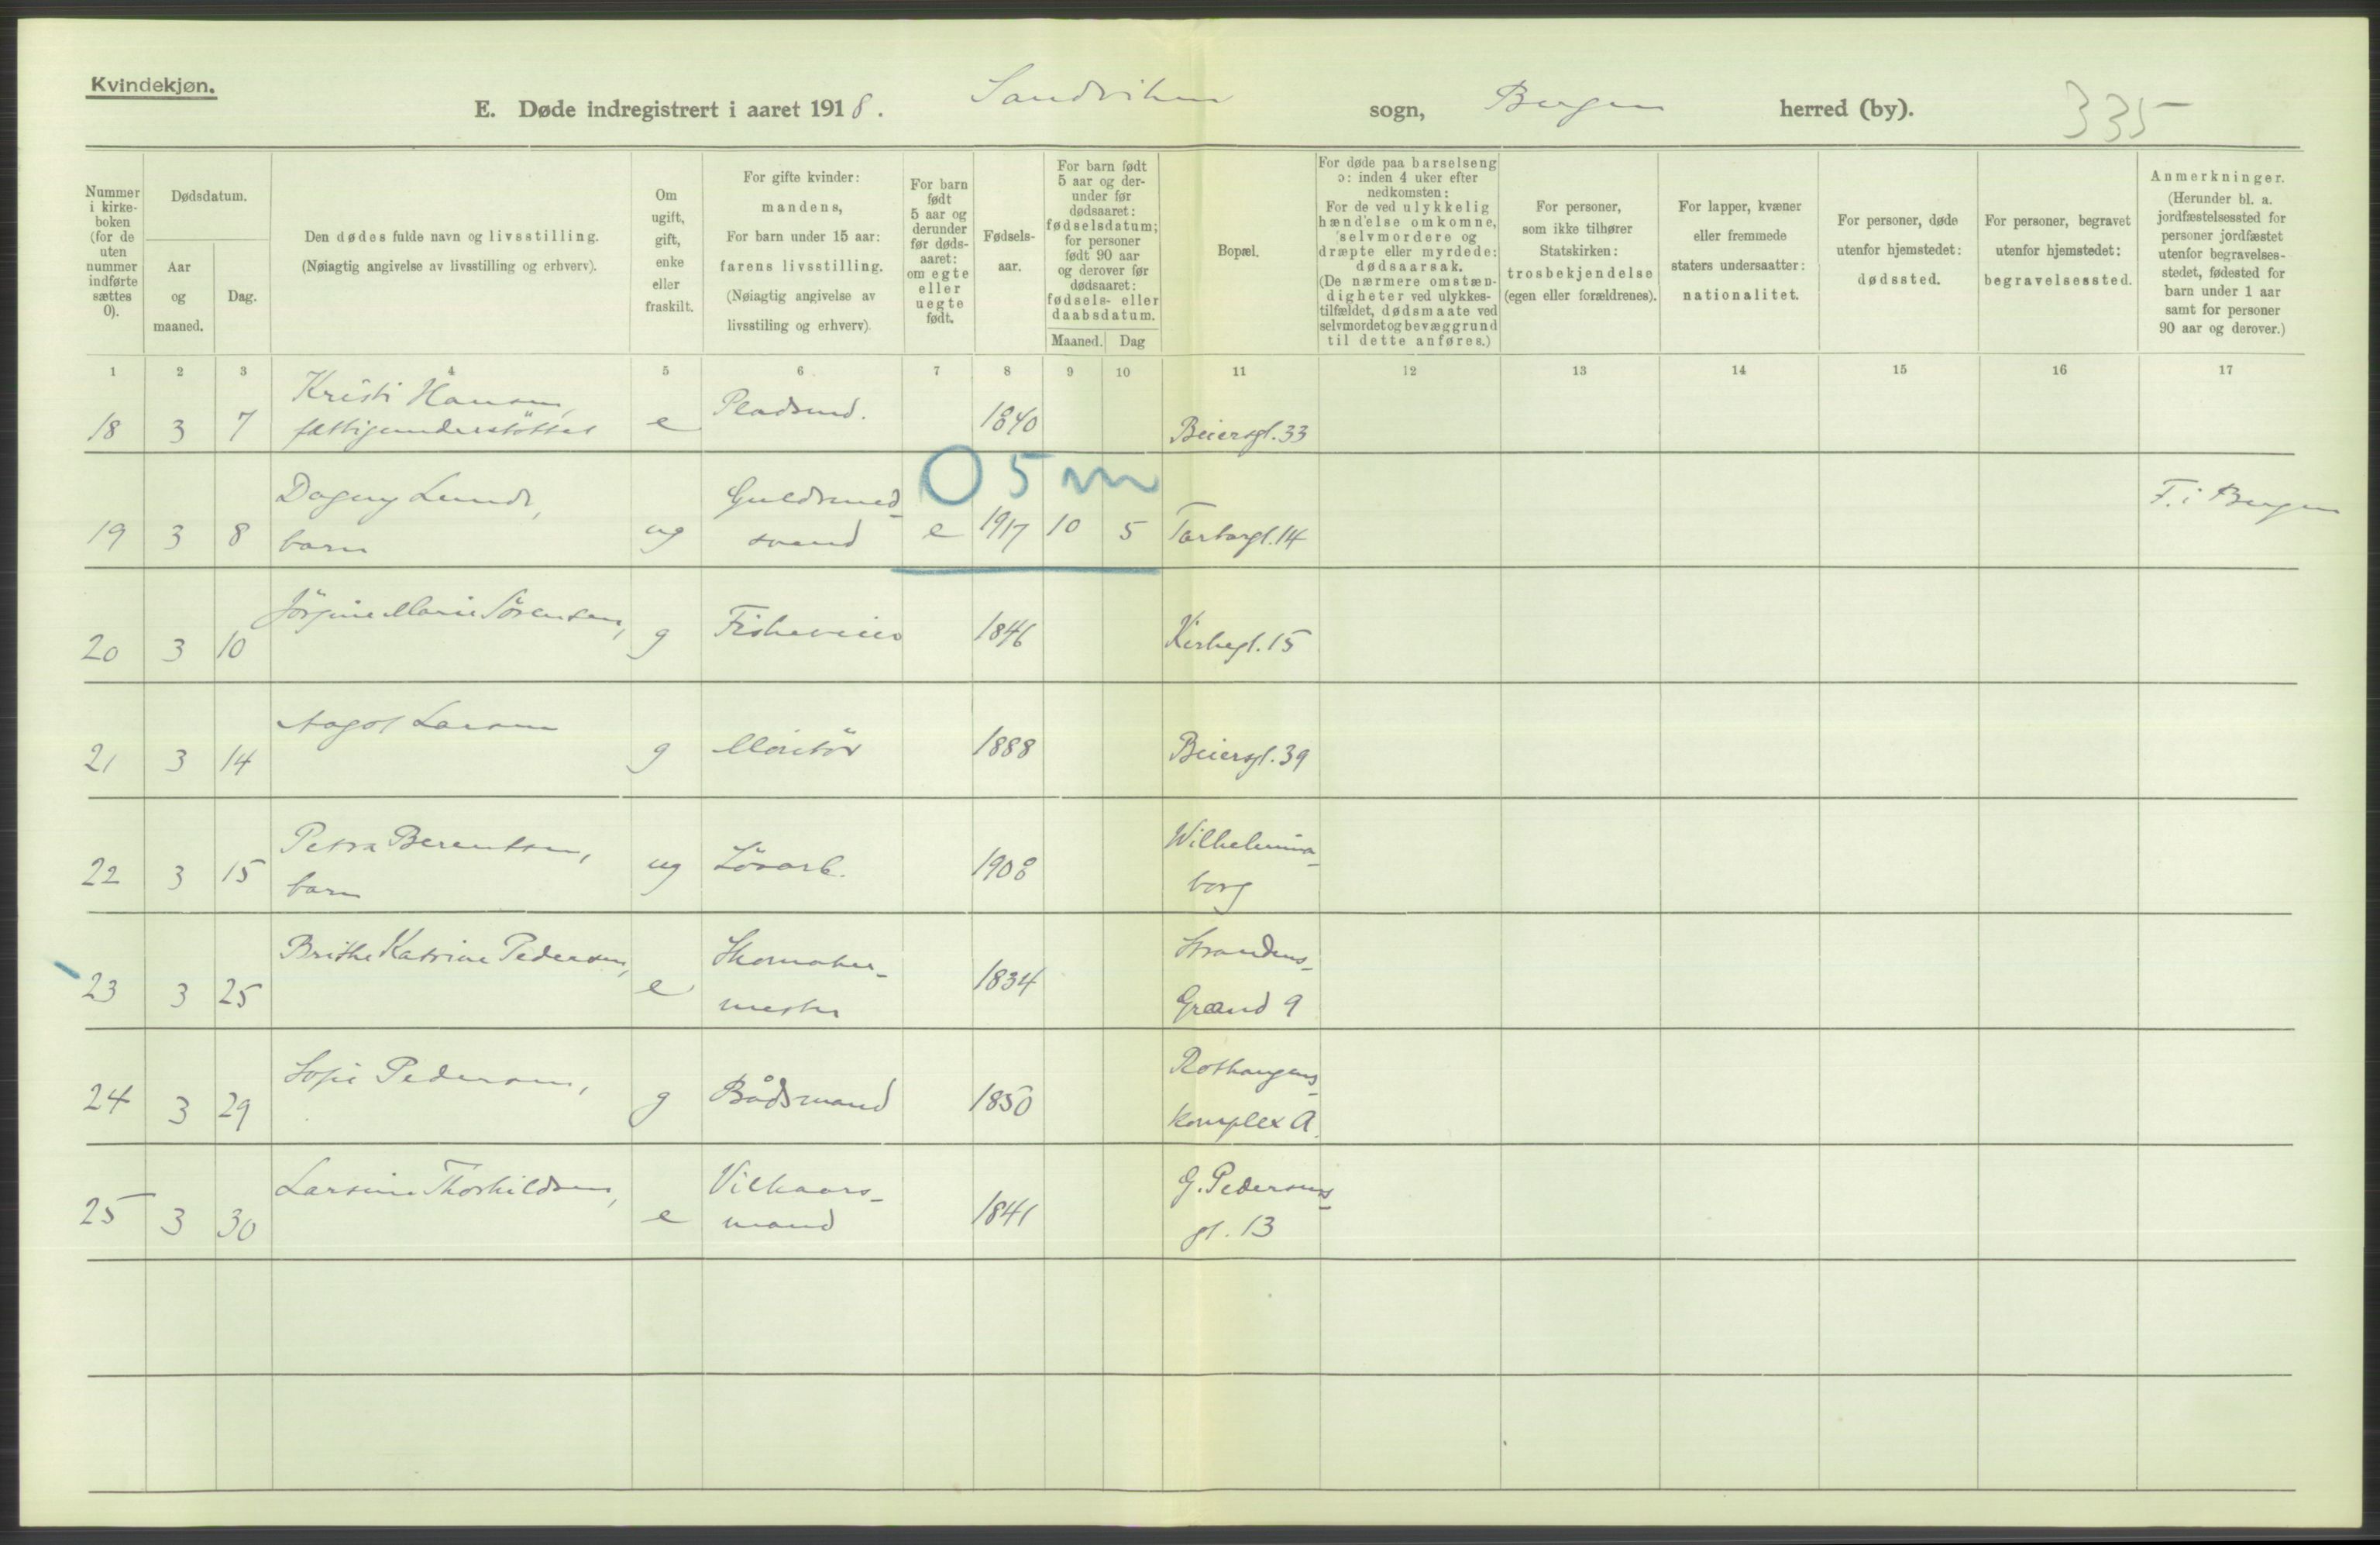 Kvindekjøn.
E. Døde indregistrert i aaret 1918. Sandviken sogn, Bergen herred (by). 335
Nummer i kirke-boken (for de uten nummer indførte sættes 0).
Dødsdatum.
Aar og maaned.
Dag.
Den dødes fulde navn og livsstilling.
(Nøiagtig angivelse av livsstilling og erhverv).
Om ugift, gift, enke eller fraskilt.
For gifte kvinder: mandens,
For barn under 15 aar: farens livsstilling.
(Nøiagtig angivelse av livsstiling og erhverv).
For barn født 5 aar og derunder før døds-aaret: om egte eller uegte født.
Fødsels-aar.
For barn født 5 aar og der-under før dødsaaret: fødselsdatum; for personer født 90 aar og derover før dødsaaret: fødsels- eller daabsdatum.
Maaned. Dag
Bopæl.
For døde paa barselseng ɔ: inden 4 uker efter nedkomsten:
For de ved ulykkelig hændelse omkomne, selvmordere og dræpte eller myrdede: dødsaarsak.
(De nærmere omstæn-digheter ved ulykkes-tilfældet, dødsmaate ved selvmordet og bevæggrund til dette anføres.)
For personer, som ikke tilhører Statskirken: trosbekjendelse (egen eller forældrenes).
For lapper, kvæner eller fremmede staters undersaatter: nationalitet.
For personer, døde utenfor hjemstedet: dødssted.
For personer, begravet utenfor hjemstedet: begravelsessted.
Anmerkninger.
(Herunder bl. a. jordfæstelsessted for personer jordfæstet utenfor begravelses-stedet, fødested for barn under 1 aar samt for personer 90 aar og derover.)
1 2 3 4 5 6 7 8 9 10 11 12 13 14 15 16 17
18 3 7 Kristi Hansen, fattigunderstöttet e Pladsmd. 1840 Beiersgt. 33
O 5 m
19 3 8 Dagny Lunde, barn ug Guldsmed-svend e 1917 10 5 Tartargt. 14 F. i Bergen
20 3 10 Jörgine Marie Sörensen, g Fiskeveier 1846 Kirkegt. 15
21 3 14 Aagot Larsen g Montör 1888 Beiersgt. 39
22 3 15 Petra Berentsen, barn ug Lösarb. 1908 Wilhelmina-borg
23 3 25 Brithe Katrine Pedersen, e Skomaker-mester 1834 Strandens-Grænd 9
24 3 29 Sofie Pedersen, g Bådsmand 1850 Rothaugens-komplex A.
25 3 30 Larsine Thorkildsen, e Vilkaars-mand 1841 G. Pedersens-gt. 13